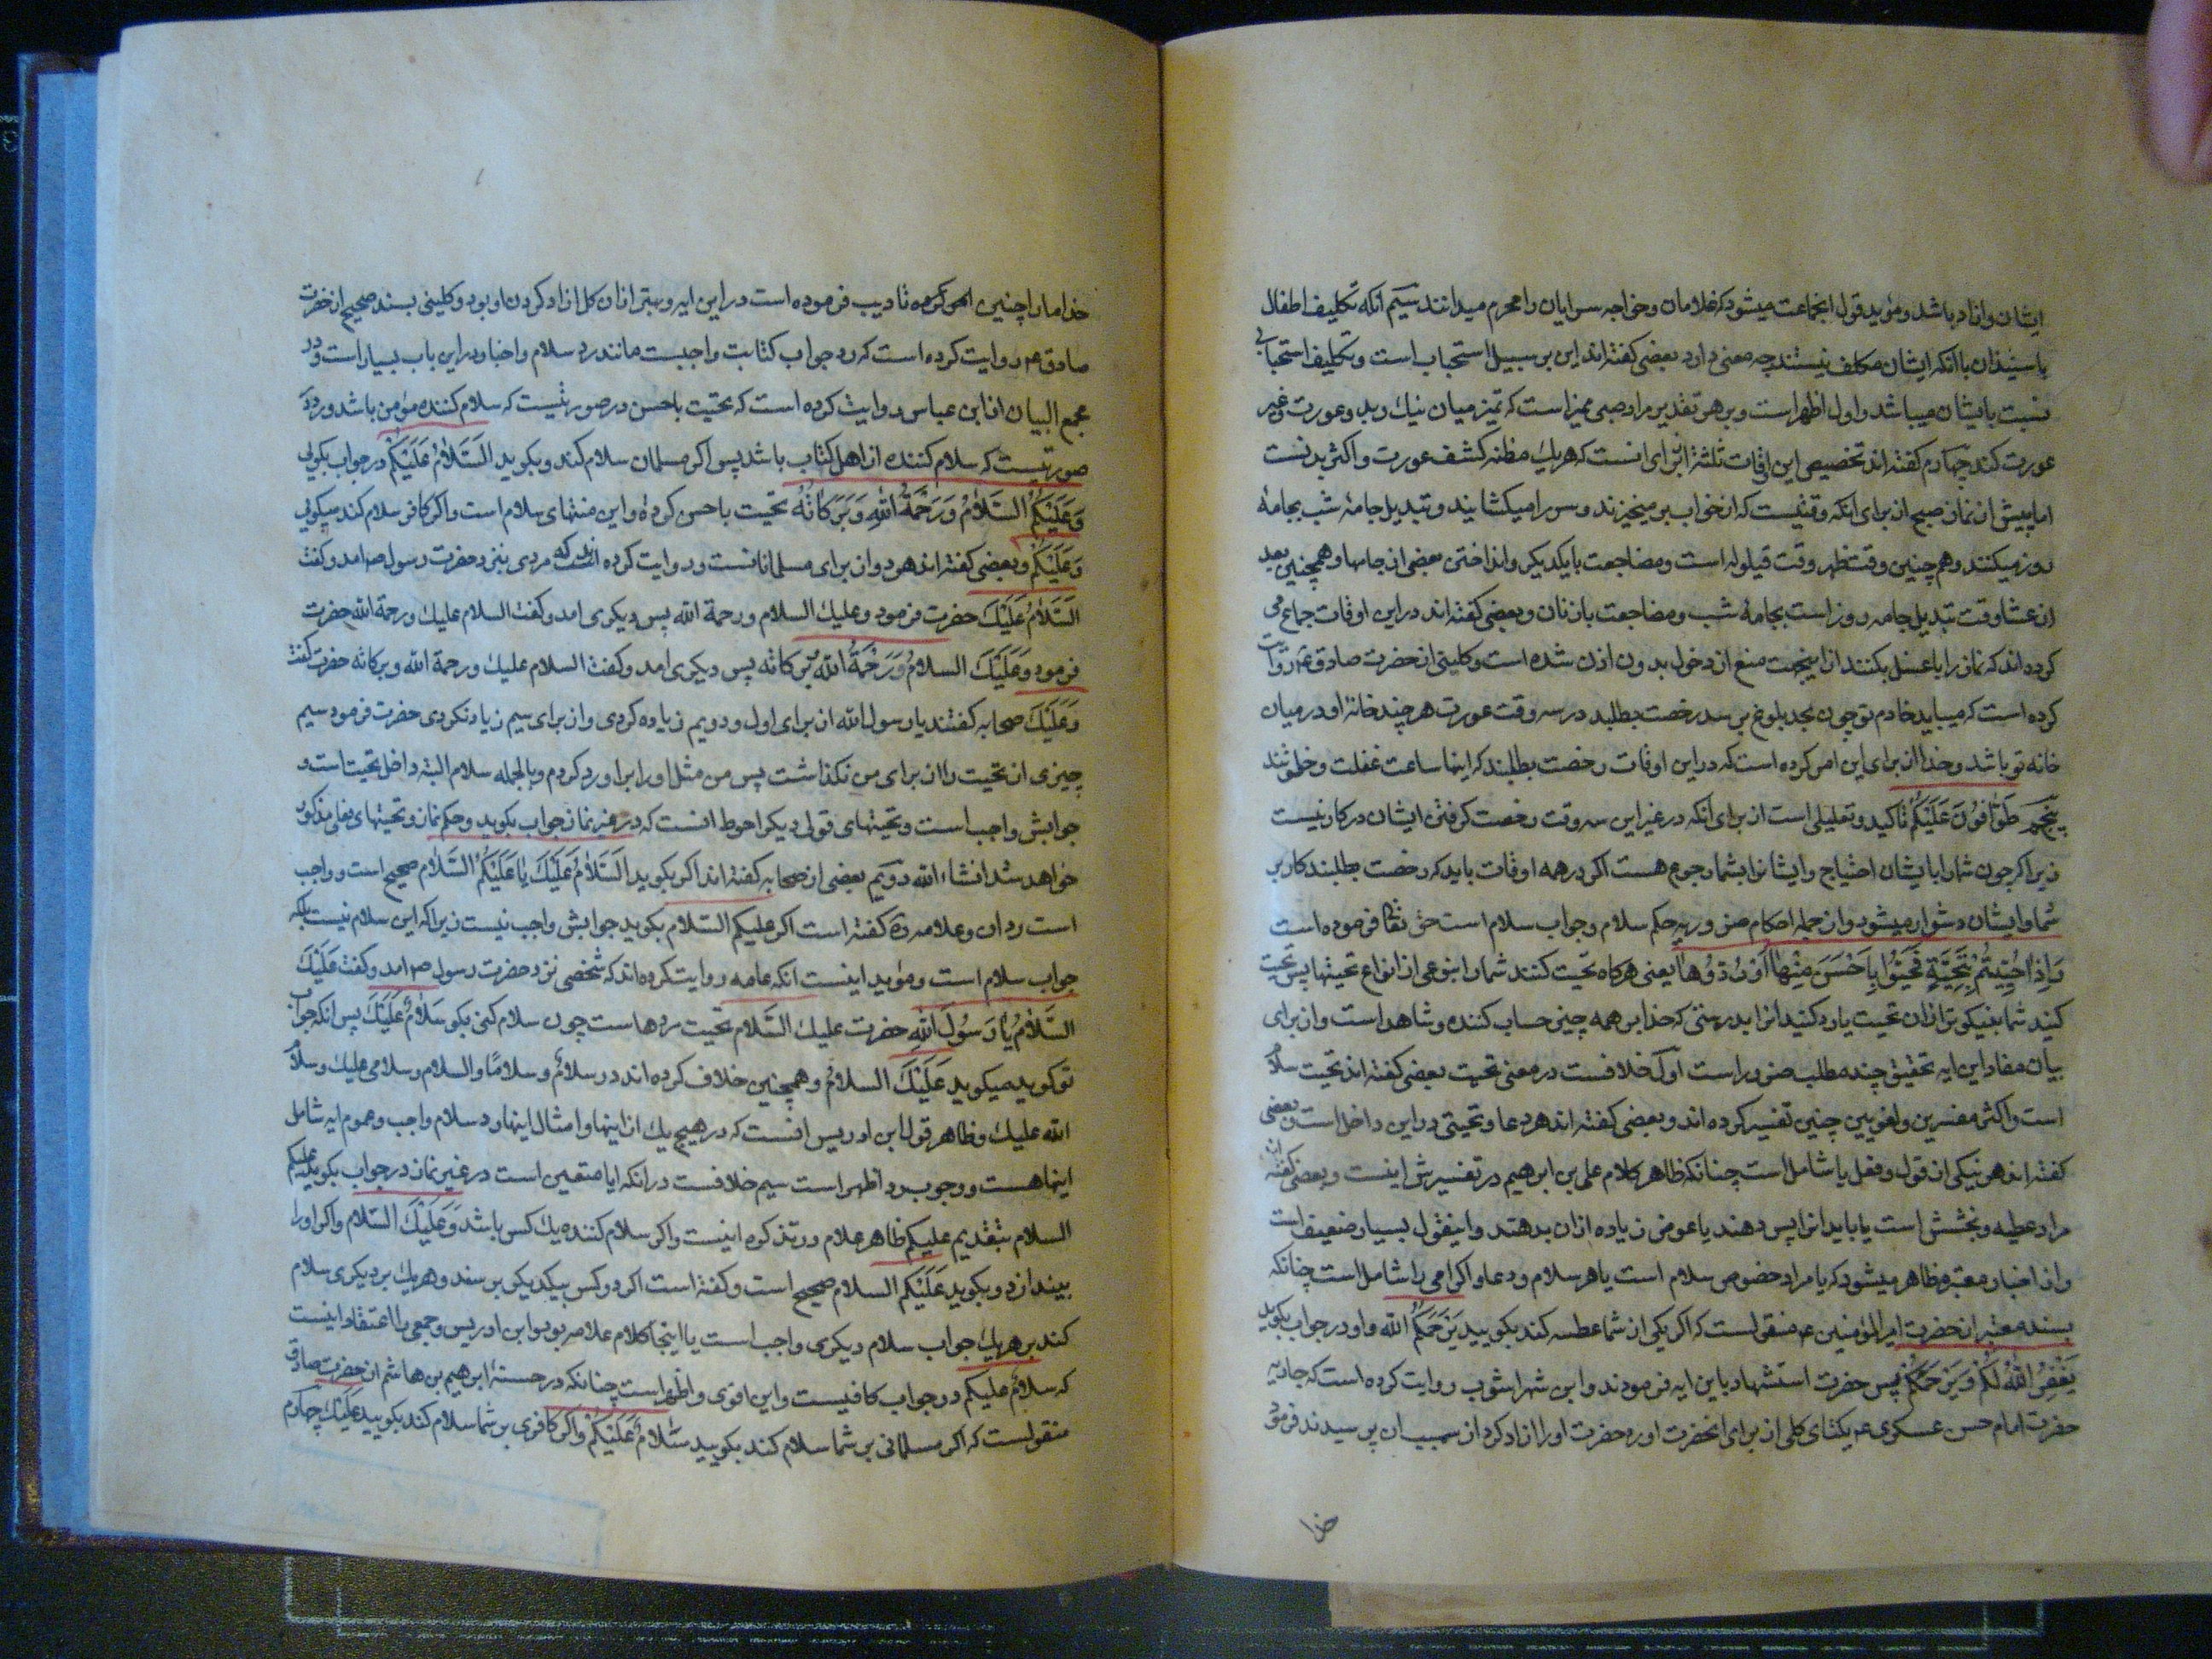 ایشان و اناد باشد و مؤید قول انجماعت میشود که غلامان و خواجه سرایان را محرم میدانند سیم انکه تکلیف اطفال
باستیذان با انکه ایشان مکلف نیستند چه معنی دارد بعضی کفته اند این بر سبیل استحباب است و تکلیف استحبابی
نسبت بایشان میباشد و اول اظهر است و بر هر تقدیر مراد صبی ممیز است که تمیز میان نیك و بد و عورت و غیر
عورت کند چهارم کفته اند تخصیص این اوقات ثلثه از برای انست که هریك مظنه کشف عورت و اکثر بدنست
اما پیش از نماز صبح از برای انکه وقتیست که از خواب بر میخیزند و سر را میکشایند و تبدیل جامهٔ شب بجامهٔ
روز میکنند و هم چنین وقت ظهر وقت قیلوله است و مضاجعت با یکدیکر و انداختن بعضی از جامها و همچنین بعد
از عشا وقت تبدیل جامه روز است بجامهٔ شب و مضاجعت با زنان و بعضی کفته اند در این اوقات جماع می
کرده اند که نماز را با غسل بکنند از اینجهت منع از دخول بدون اذن شده است و کلینی از حضرت صادق ع روایت
کرده است که میباید خادم تو چون بحد بلوغ برسد رخصت بطلبد در سه وقت عورت هر چند خانهٔ او در میان
خانه تو باشد و خدا از برای این امر کرده است که در این اوقات رخصت بطلبند که اینها ساعت غفلت و خلوتند
پنجم طَوّافُونَ عَلَیْکُمْ تاکید و تعلیلی است از برای انکه در غیر این سه وقت رخصت کرفتن ایشان در کار نیست
زیرا که چون شما را با ایشان احتیاج و ایشانرا بشما رجوع هست اکر در همه اوقات باید که رخصت بطلبند کار بر
شما و ایشان دشوار میشود و از جمله احکام ضروریه حکم سلام و جواب سلام است حق تعالی فرموده است
وَاِذا حُیِّیتُمْ بِتَحِیَّةٍ فَحَیُّوا بِاَحْسَنَ مِنْها اَوْ رُدُّوها یعنی هرکاه تحیت کنند شما را بنوعی از انواع تحیتها پس تحیت
کنید شما بنیکوتر از ان تحیت یا رد کنید انرا بدرستی که خدا بر همه چیز حساب کننده و شاهد است و از برای
بیان مفاد این ایه تحقیق چند مطلب ضرور است اول خلافست در معنی تحیت بعضی کفته اند تحیت سلام
است و اکثر مفسرین و لغویین چنین تفسیر کرده اند و بعضی کفته اند هر دعا و تحیتی در این داخل است و بعضی
کفته اند هر نیکی از قول و فعل را شامل است چنانکه ظاهر کلام علی بن ابرهیم در تفسیرش اینست و بعضی کفته اند
مراد عطیه و بخشش است یا باید انرا پس دهند یا عوض زیاده از ان بدهند و اینقول بسیار ضعیف است
و از اخبار معتبره ظاهر میشود که یا مراد خصوص سلام است یا هر سلام و دعا و اکرامی را شامل است چنانکه
بسند معتبر از حضرت امیر المؤمنین ع منقولست که اکر یکی از شما عطسه کند بکویید یَرْحَمُکُمُ الله و او در جواب بکوید
یَغْفِرُ اللّٰهُ لَکُمْ وَ یَرْحَمُکُمْ پس حضرت استشهاد باین ایه فرمودند و ابن شهراشوب روایت کرده است که جاریه
حضرت امام حسن عسکری ع یکتای کلی از برای انحضرت اورد حضرت او را ازاد کرد از سبب ان پرسیدند فرمود
خدا
خدا ما را چنین تادیب فرموده است در این ایه و بهتر از ان کل ازاد کردن او بود و کلینی بسند صحیح از حضرت
صادق ع روایت کرده است که رد جواب کتابت واجبست مانند رد سلام و اخبار در این باب بسیار است و در
مجمع البیان از ابن عباس روایت کرده است که تحیت باحسن در صورتیست که سلام کننده مؤمن باشد و رد در
صورتیست که سلام کننده از اهل کتاب باشد پس اکر مسلمان سلام کند و بکوید اَلسَّلامُ عَلَیْکُمْ در جواب بکویی
وَعَلَیْکُمُ السَّلامُ وَرَحْمَةُ اللّٰهِ وَبَرَکاتُهُ تحیت باحسن کرده و این منتهای سلام است و اکر کافر سلام کند میکویی
وَعَلَیْکُمْ و بعضی کفته اند هر دو از برای مسلمانانست و روایت کرده اند که مردی بنزد حضرت رسول ص امد و کفت
اَلسَّلامُ عَلَیْكَ حضرت فرمود و علیك السلام و رحمة الله پس دیکری امد و کفت السلام علیك و رحمة الله حضرت
فرمود وَعَلَیْكَ السلامُ وَرَحْمَةُ اللّٰهِ وَبَرکاته پس دیکری امد و کفت السلام علیك و رحمة الله و برکاته حضرت کفت
وَعَلَیْكَ صحابه کفتند یا رسول الله از برای اول و دویم زیاده کردی و از برای سیم زیاد نکردی حضرت فرمود سیم
چیزی از تحیت را از برای من نکذاشت پس من مثل او را بر او رد کردم و بالجمله سلام البته داخل تحیت است و
جوابش واجب است و تحیتهای قولی دیکر احوط انست که در غیر نماز جواب بکوید و حکم نماز و تحیتهای فعلی مذکور
خواهد شد انشاء الله دویم بعضی از صحابه کفته اند اکر بکوید اَلسَّلامُ عَلَیْكَ یا عَلَیْکُمُ السَّلام صحیح است و واجب
است رد ان و علامه ره کفته است اکر علیکم السلام بکوید جوابش واجب نیست زیرا که این سلام نیست بلکه
جواب سلام است و مؤید اینست انکه عامه روایت کرده اند که شخصی نزد حضرت رسول ص امد و کفت عَلَیْكَ
السَّلامُ یا رَسُولَ اللّٰهِ حضرت علیك السَّلام تحیت مردهاست چون سلام کنی بکو سَلامٌ عَلَیْكَ پس انکه جواب
تو کوید میکوید عَلَیْكَ السلامُ و همچنین خلاف کرده اند در سلامٌ و سلامًا و السلام و سلامی علیك و سلام
الله علیك و ظاهر قول ابن ادریس انست که در هیچ یك از اینها و امثال اینها رد سلام واجب و عموم ایه شامل
اینها هست و وجوب رد اظهر است سیم خلافست در انکه ایا متعین است در غیر نماز در جواب بکوید علیکم
السلام بتقدیم علیکم ظاهر علام در تذکره اینست و اکر سلام کننده یك کس باشد وَعَلَیْكَ السَّلام و اکر او را
بیندازد و بکوید عَلَیْکُم السلام صحیح است و کفته است اکر دو کس بیکدیکر برسند و هریك بر دیکری سلام
کند بر هریك جواب سلام دیکری واجب است یا اینجا کلام علامه بود و ابن ادریس و جمعی را اعتقاد اینست
که سلامٌ علیکم در جواب کافیست و این اقوی و اظهر است چنانکه در حسنهٔ ابرهیم بن هاشم از حضرت صادق
منقولست که اکر مسلمانی بر شما سلام کند بکویید سَلامٌ عَلَیْکُمْ و اکر کافری بر شما سلام کند بکویید عَلَیْكَ چهارم